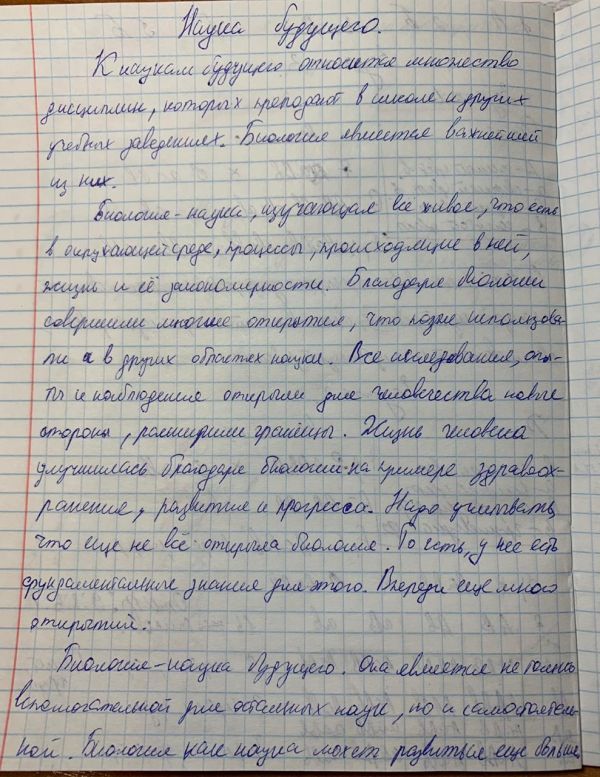 Наука будущего.
К наукам будущего относится множество
дисциплин, которых преподают в школе и других
учебных заведениях. Биология является важнейшей
из них.
Биология - наука, изучающая все живое, что есть
в окружающей среде, процессы, происходящие в ней,
жизнь и её закономерности. Благодаря биологии
совершили многие открытия, что позже использова-
ли и в других областях науки. Все исследования, опы-
ты и наблюдения открыли для человечества новые
стороны, расширили границы. Жизнь человека
улучшилась благодаря биологии на примере здравоох-
ранения, развития и прогресса. Надо учитывать,
что еще не всё открыла биология. То есть, у нее есть
фундаментальные знания для этого. Впереди еще много
открытий.
Биология - наука будущего. Она является не только
вспомогательной для остальных наук, но и самостоятель-
ной. Биология как наука может развиться еще больше